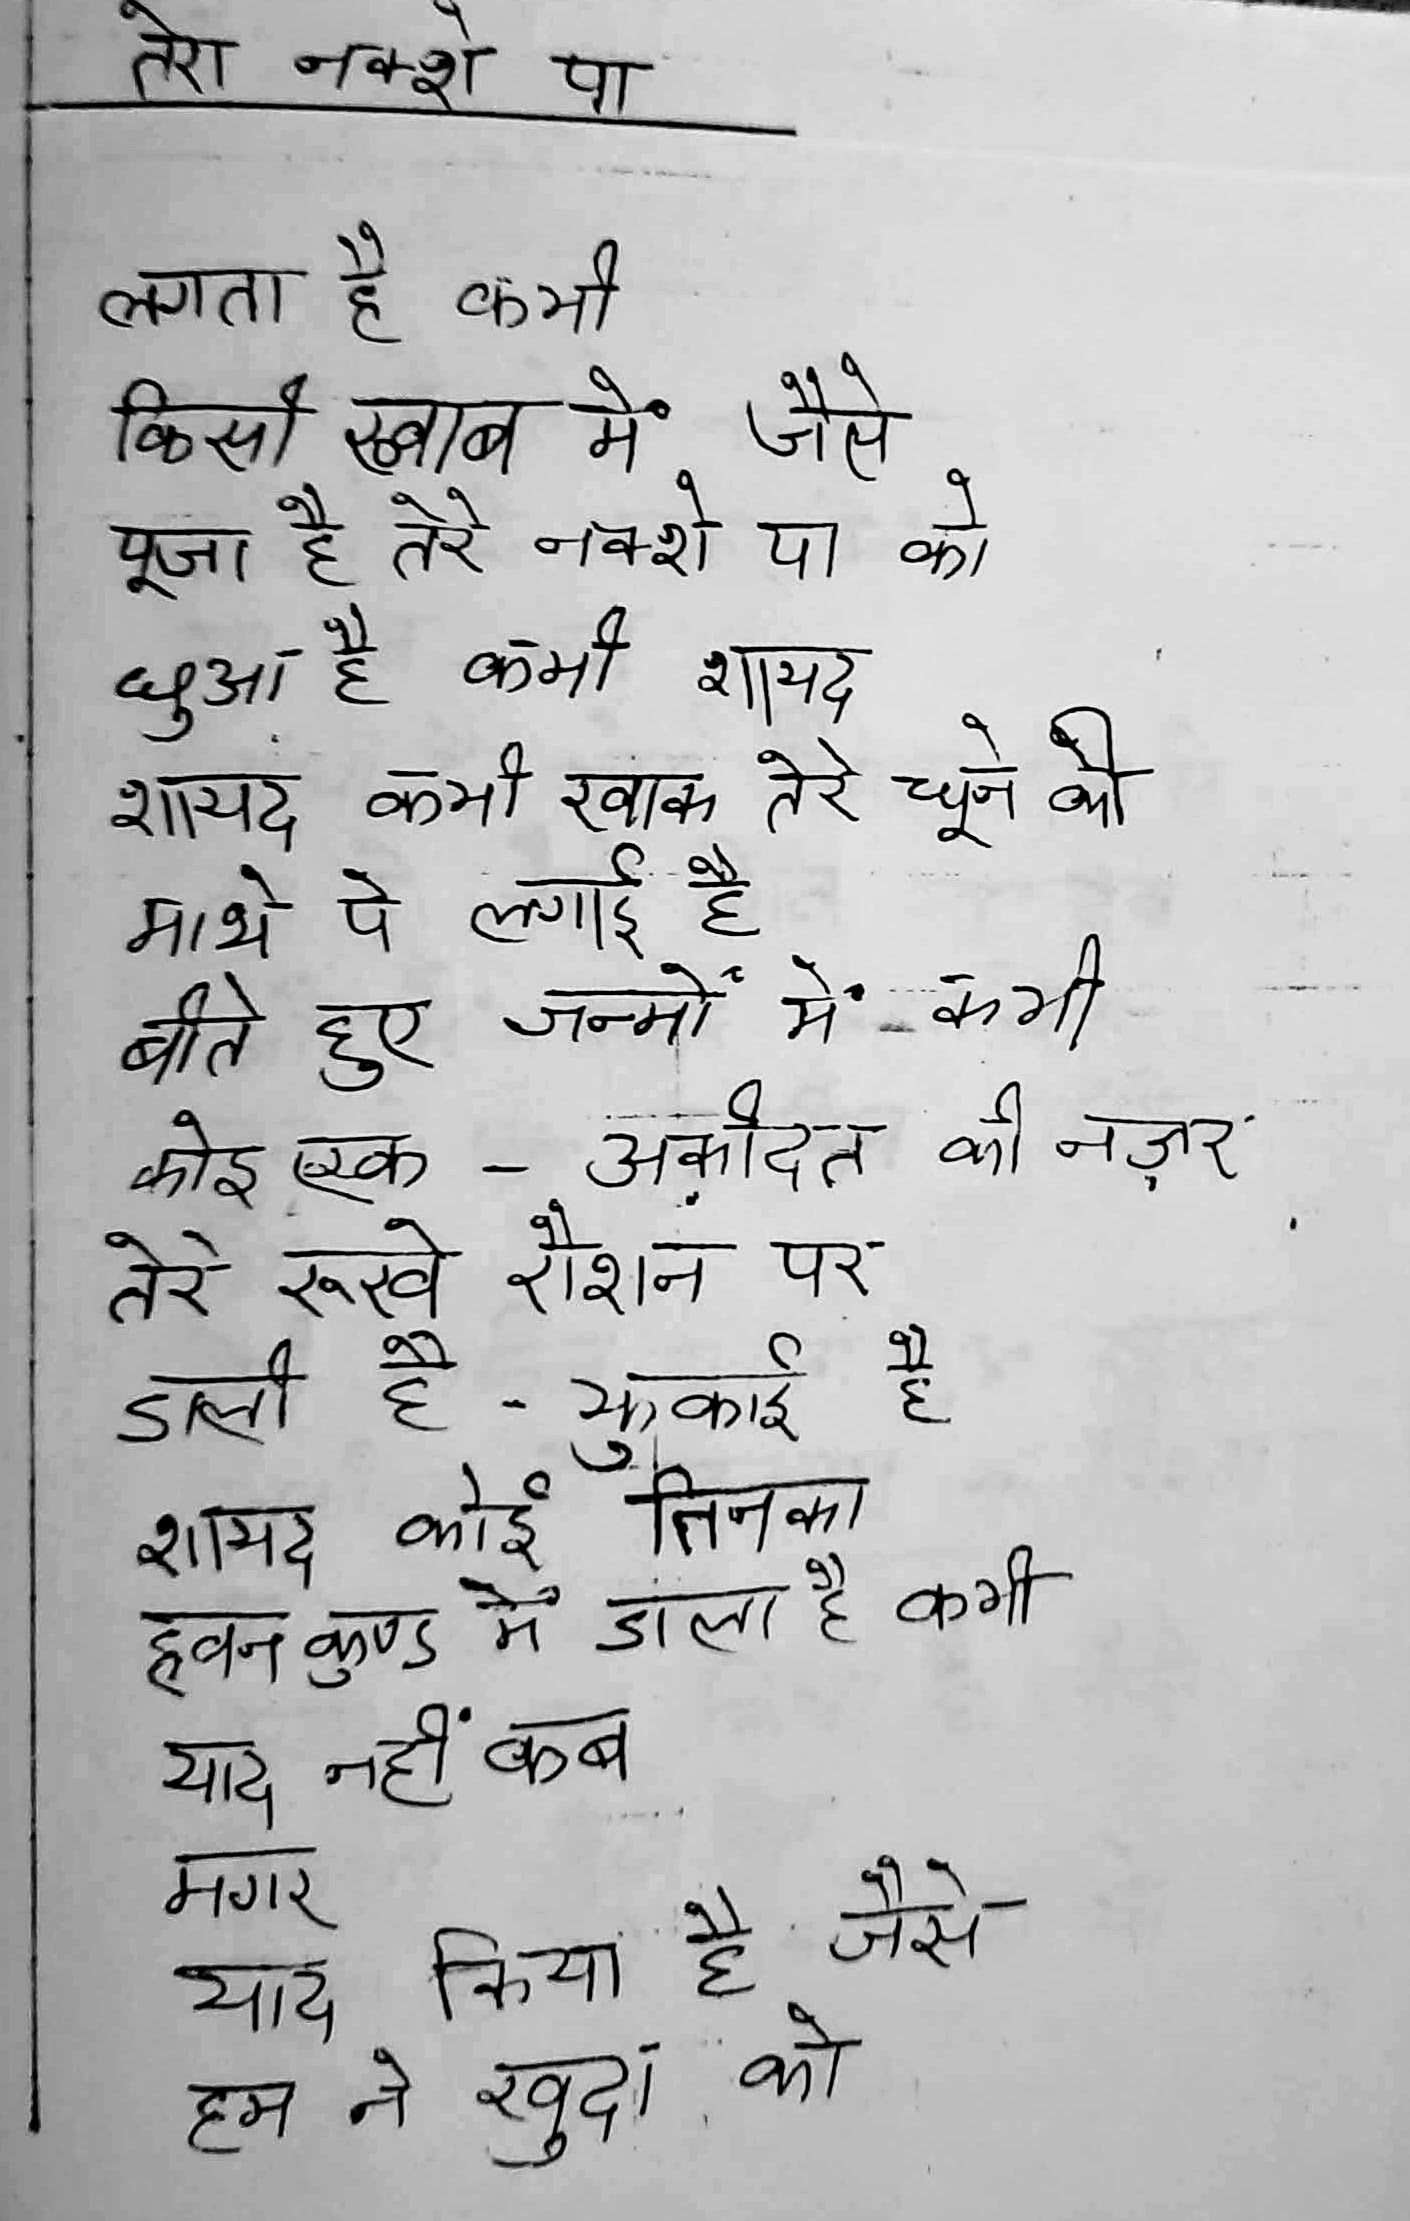 तेरा नक्शे पा
लगता है कभी
किसी ख्वाब में जैसे
पूजा है तेरे नक्शे पा को
छुआ है कभी शायद
शायद कभी खाक तेरे चूने की
माथे पे लगाई है
बीते हुए जन्मों में कभी
कोइ एक - अक़ीदत की नज़र
तेरे रूखे रौशन पर
डाली है - झुकाई है
शायद कोई तिनका
हवन कुण्ड में डाला है कभी
याद नहीं कब
मगर
याद किया है जैसे
हम ने खुदा को